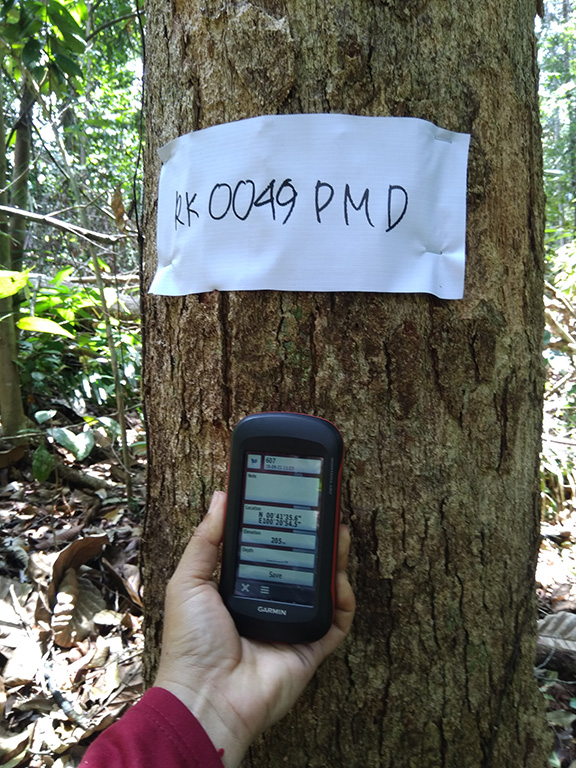 RK 0049 PMD
607
Note
Location
N 00°41'35.6"
E100°20'54.5"
Elevation
205m
Depth
Save
GARMIN